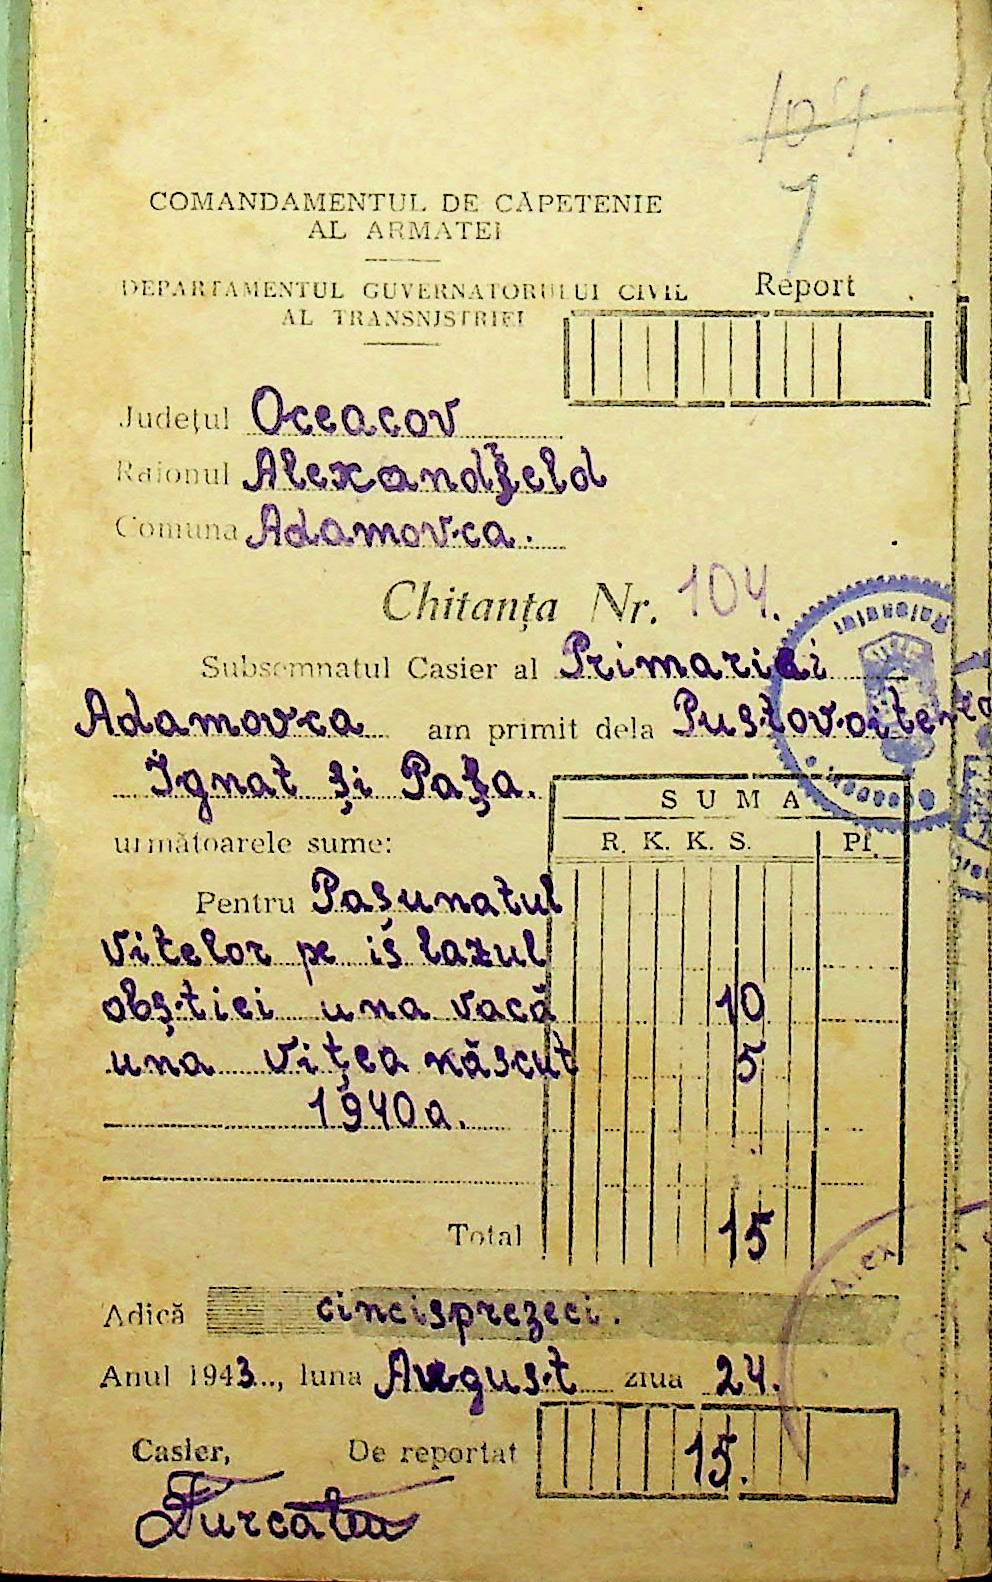 104.
7
COMANDAMENTUL DE CĂPETENIE
AL ARMATEI
DEPARTAMENTUL GUVERNATORULUI CIVIL
AL TRANSNISTRIEI
Report
Județul Oceacov
Raionul Alexandfeld
Comuna Adamovca.
Chitanța Nr. 104.
Subsemnatul Casier al Primariei
Adamovca am primit dela Pustovoitenco
Ignat și Pașa.
următoarele sume:
SUMA
R. K. K. S. Pf.
Pentru Pașunatul
vitelor pe islazul
obștiei una vacă 10
una vițea născut 5
1940 a.
Total 15
Adică cincisprezeci.
Anul 1943.., luna August ziua 24.
Casier, De reportat 15.